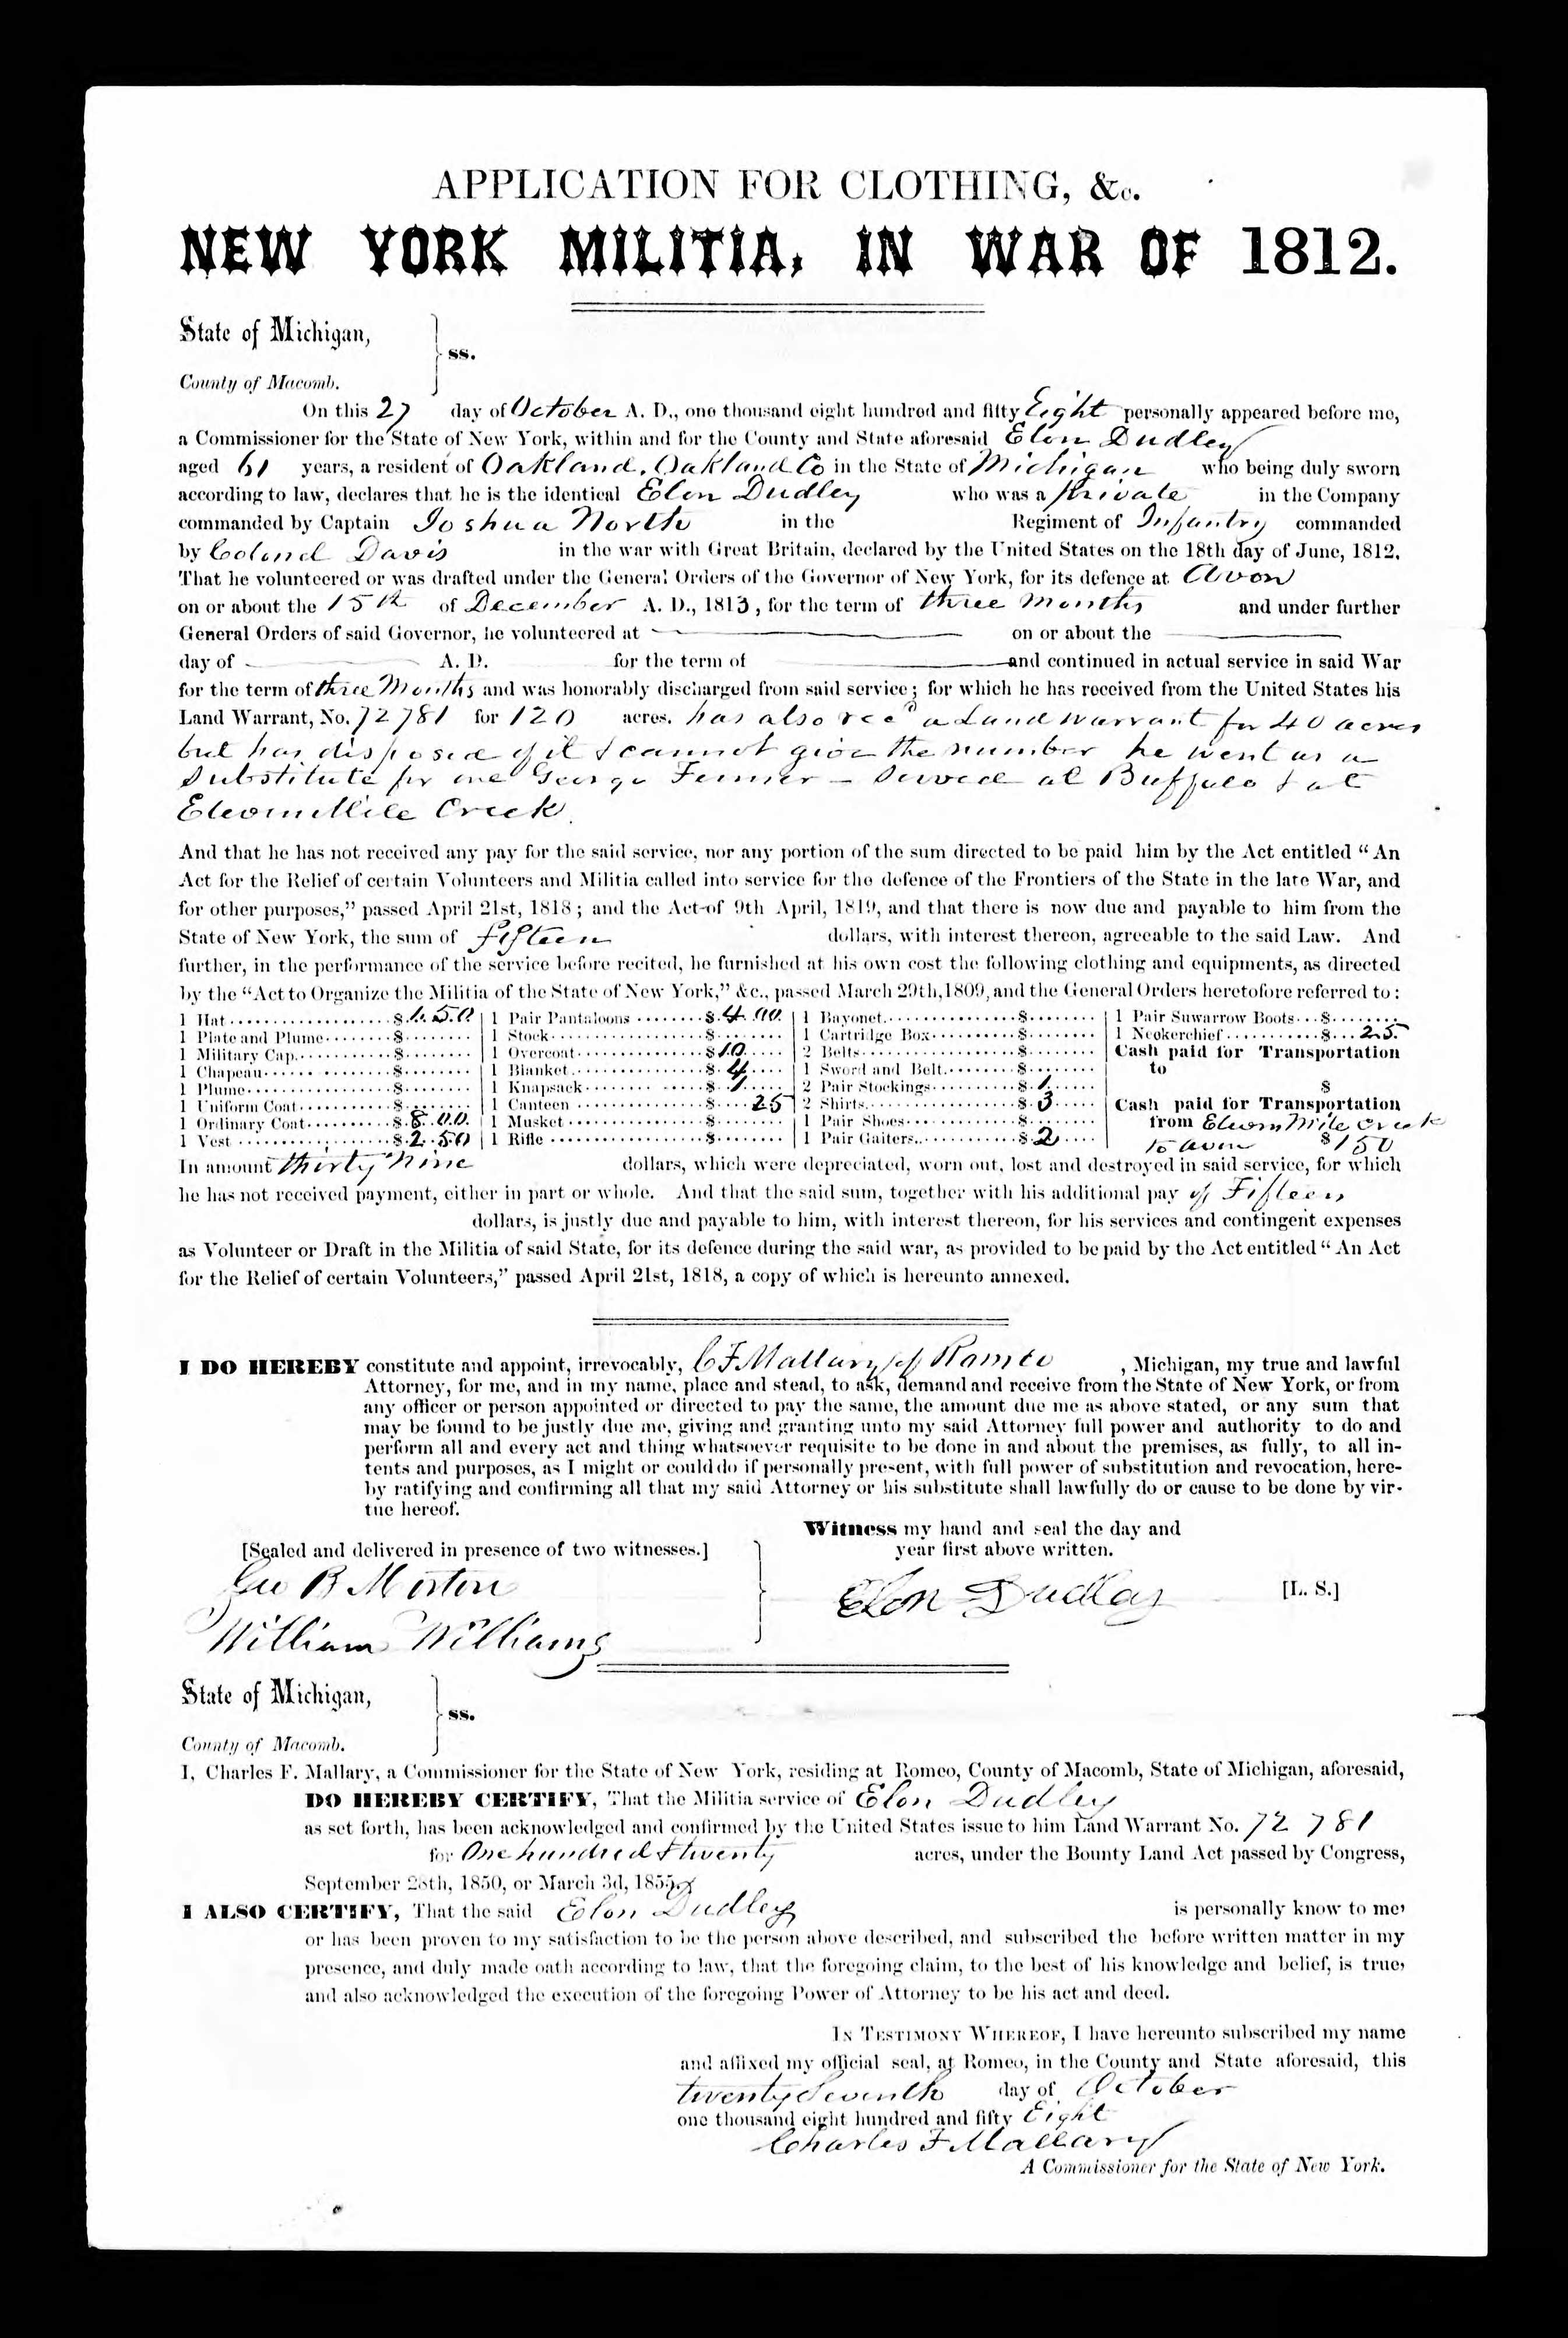 APPLICATION FOR CLOTHING, &c.
NEW YORK MILITIA, IN WAR OF 1812.
State of Michigan,
ss.
County of Macomb.
On this 27 day of October A. D., one thousand eight hundred and fifty Eight personally appeared before me,
a Commissioner for the State of New York, within and for the County and State aforesaid Elon Dudley
aged 61 years, a resident of Oakland, Oakland Co in the State of Michigan who being duly sworn
according to law, declares that he is the identical Elon Dudley who was a private in the Company
commanded by Captain Joshua North in the Regiment of Infantry commanded
by Colonel Davis in the war with Great Britain, declared by the United States on the 18th day of June, 1812.
That he volunteered or was drafted under the General Orders of the Governor of New York, for its defence at Avon
on or about the 15th of December A. D., 1813, for the term of three Months and under further
General Orders of said Governor, he volunteered at on or about the
day of A. D. for the term of and continued in actual service in said War
for the term of three Months and was honorably discharged from said service; for which he has received from the United States his
Land Warrant, No. 72781 for 120 acres. has also recd a Land warrant for 40 acres
but has disposed of it & cannot give the number he went as a
Substitute for one George Fenner - Served at Buffalo & at
Elevn Mile Creek.
And that he has not received any pay for the said service, nor any portion of the sum directed to be paid him by the Act entitled "An
Act for the Relief of certain Volunteers and Militia called into service for the defence of the Frontiers of the State in the late War, and
for other purposes," passed April 21st, 1818; and the Act of 9th April, 1819, and that there is now due and payable to him from the
State of New York, the sum of fifteen dollars, with interest thereon, agreeable to the said Law. And
further, in the performance of the service before recited, he furnished at his own cost the following clothing and equipments, as directed
by the "Act to Organize the Militia of the State of New York," &c., passed March 29th, 1809, and the General Orders heretofore referred to:
1 Hat $1.50 1 Pair Pantaloons $4.00 1 Bayonet $ 1 Pair Suwarrow Boots $
1 Plate and Plume $ 1 Stock $ 1 Cartridge Box $ 1 Neckerchief $ 25
1 Military Cap $ 1 Overcoat $10 2 Belts $ Cash paid for Transportation
1 Chapeau $ 1 Blanket $4 1 Sword and Belt $ to
1 Plume $ 1 Knapsack $1 2 Pair Stockings $1 $
1 Uniform Coat $ 1 Canteen $ 25 2 Shirts $3 Cash paid for Transportation
1 Ordinary Coat $8.00 1 Musket $ 1 Pair Shoes $ from Elevn Mile Creek
1 Vest $2.50 1 Rifle $ 1 Pair Gaiters $2 to Avon $150
In amount thirty Nine dollars, which were depreciated, worn out, lost and destroyed in said service, for which
he has not received payment, either in part or whole. And that the said sum, together with his additional pay of Fifteen
dollars, is justly due and payable to him, with interest thereon, for his services and contingent expenses
as Volunteer or Draft in the Militia of said State, for its defence during the said war, as provided to be paid by the Act entitled "An Act
for the Relief of certain Volunteers," passed April 21st, 1818, a copy of which is hereunto annexed.
I DO HEREBY constitute and appoint, irrevocably, C F Mallary of Romeo, Michigan, my true and lawful
Attorney, for me, and in my name, place and stead, to ask, demand and receive from the State of New York, or from
any officer or person appointed or directed to pay the same, the amount due me as above stated, or any sum that
may be found to be justly due me, giving and granting unto my said Attorney full power and authority to do and
perform all and every act and thing whatsoever requisite to be done in and about the premises, as fully, to all in-
tents and purposes, as I might or could do if personally present, with full power of substitution and revocation, here-
by ratifying and confirming all that my said Attorney or his substitute shall lawfully do or cause to be done by vir-
tue hereof.
Witness my hand and seal the day and
[Sealed and delivered in presence of two witnesses.] year first above written.
Geo B Morton
Elon Dudley [L. S.]
William Williams
State of Michigan,
ss.
County of Macomb.
I, Charles F. Mallary, a Commissioner for the State of New York, residing at Romeo, County of Macomb, State of Michigan, aforesaid,
DO HEREBY CERTIFY, That the Militia service of Elon Dudley
as set forth, has been acknowledged and confirmed by the United States issue to him Land Warrant No. 72 781
for One hundred & twenty acres, under the Bounty Land Act passed by Congress,
September 28th, 1850, or March 3d, 1855.
I ALSO CERTIFY, That the said Elon Dudley is personally know to me,
or has been proven to my satisfaction to be the person above described, and subscribed the before written matter in my
presence, and duly made oath according to law, that the foregoing claim, to the best of his knowledge and belief, is true,
and also acknowledged the execution of the foregoing Power of Attorney to be his act and deed.
IN TESTIMONY WHEREOF, I have hereunto subscribed my name
and affixed my official seal, at Romeo, in the County and State aforesaid, this
twenty Seventh day of October
one thousand eight hundred and fifty Eight
Charles F Mallary
A Commissioner for the State of New York.